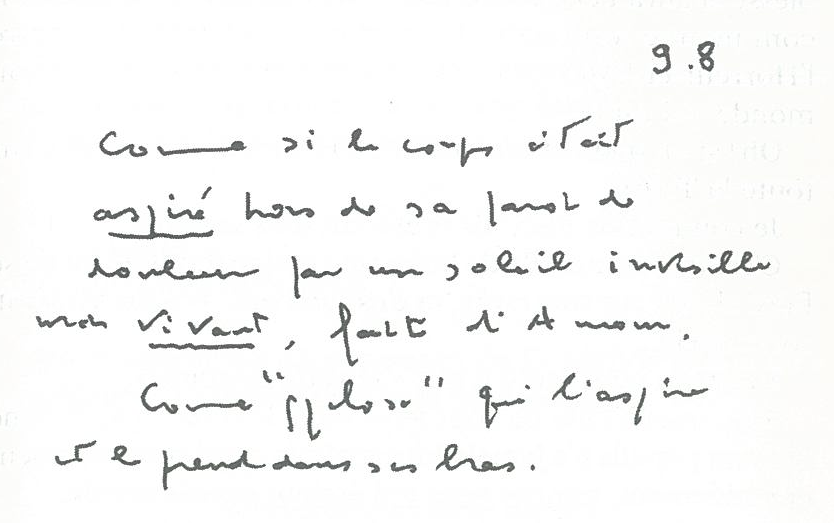 9.8
Comme si le corps était
aspiré hors de sa paroi de
douleur par un soleil invisible
mais vivant, fait d'Amour.
Comme " " qui l'aspire
et le prend dans ses bras.